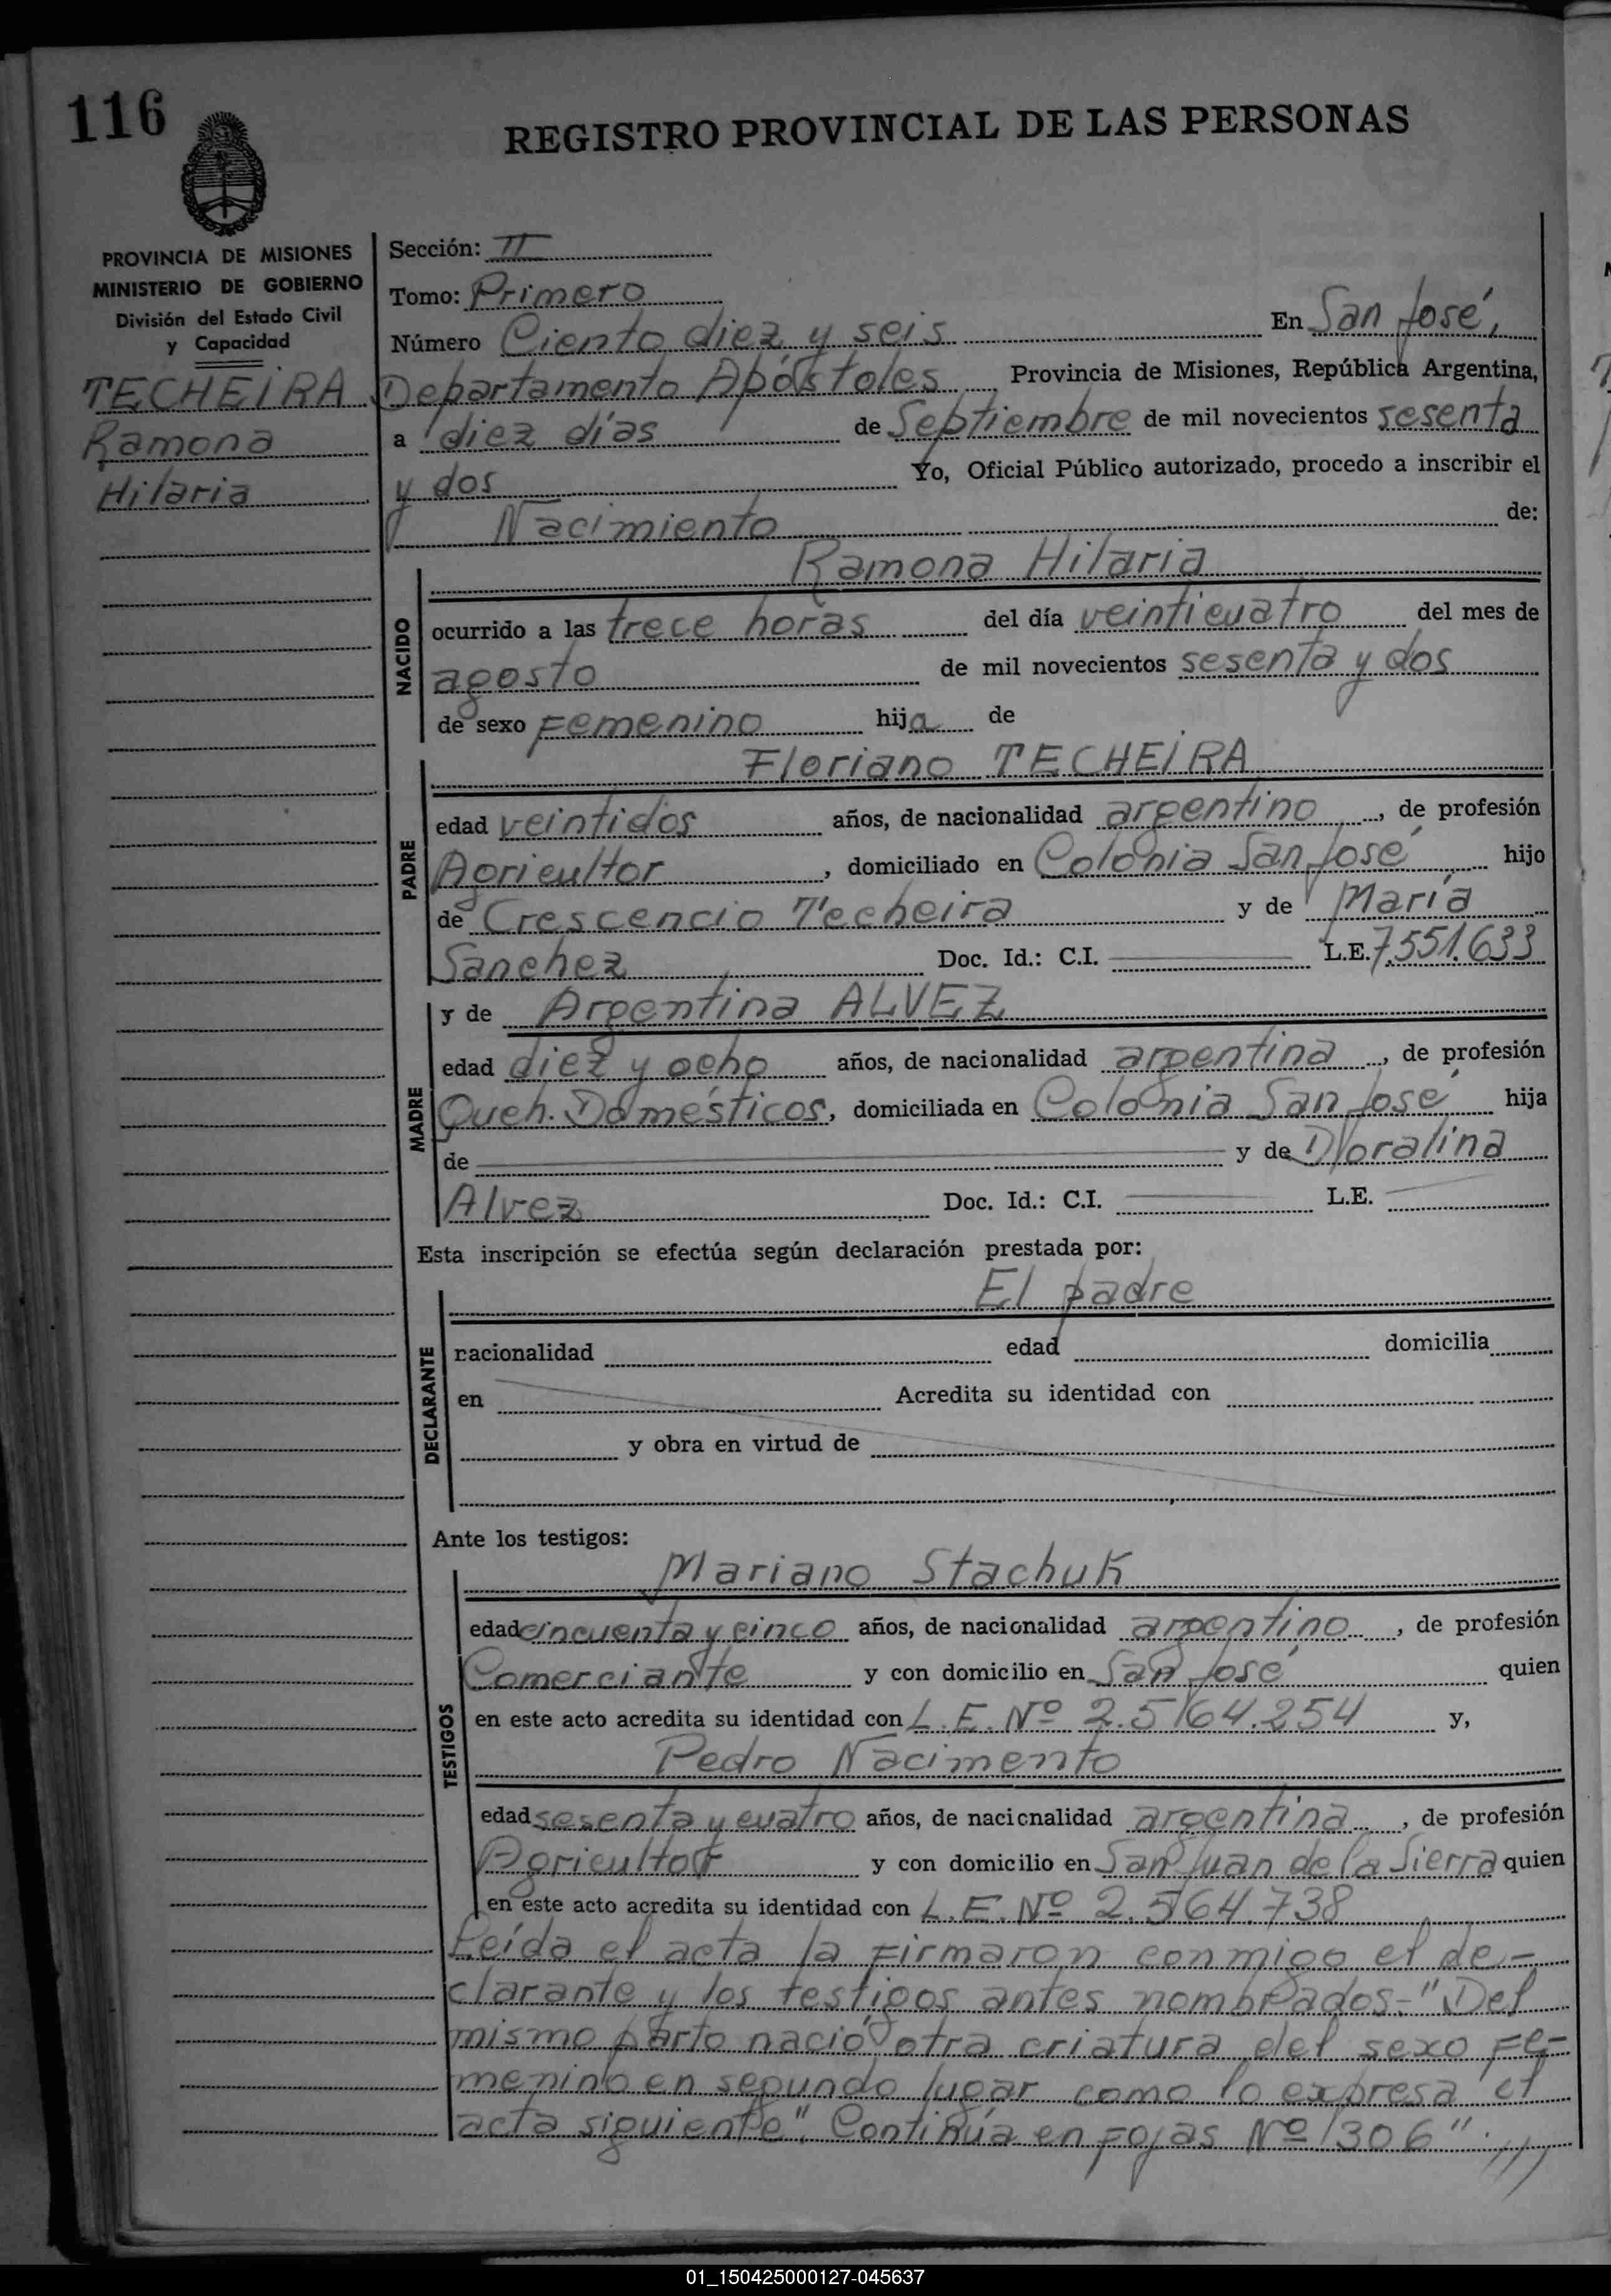 116
REGISTRO PROVINCIAL DE LAS PERSONAS
PROVINCIA DE MISIONES
MINISTERIO DE GOBIERNO
División del Estado Civil
y Capacidad
TECHEIRA
Ramona
Hilaria
Sección: II
Tomo: Primero
Número Ciento diez y seis En San José,
Departamento Apóstoles Provincia de Misiones, República Argentina,
a diez días de Septiembre de mil novecientos sesenta
y dos Yo, Oficial Público autorizado, procedo a inscribir el
Nacimiento de:
Ramona Hilaria
NACIDO
ocurrido a las trece horas del día veinticuatro del mes de
agosto de mil novecientos sesenta y dos
de sexo Femenino hija de
Floriano TECHEIRA
PADRE
edad veintidos años, de nacionalidad argentino, de profesión
Agricultor, domiciliado en Colonia San José hijo
de Crescencio Techeira y de María
Sanchez Doc. Id.: C.I. L.E. 7.551.633
y de Argentina ALVEZ
MADRE
edad diez y ocho años, de nacionalidad argentina, de profesión
Queh. Domésticos, domiciliada en Colonia San José hija
de y de Dloralina
Alvez Doc. Id.: C.I. L.E.
Esta inscripción se efectúa según declaración prestada por:
El padre
DECLARANTE
nacionalidad edad domicilia
en Acredita su identidad con
y obra en virtud de
Ante los testigos:
Mariano Stachuk
TESTIGOS
edad cincuenta y cinco años, de nacionalidad argentino, de profesión
Comerciante y con domicilio en San José quien
en este acto acredita su identidad con L.E. Nº 2.564.254 y,
Pedro Nacimento
edad sesenta y cuatro años, de nacionalidad argentina, de profesión
Agricultor y con domicilio en San Juan de la Sierra quien
en este acto acredita su identidad con L.E. Nº 2.564.738
Leída el acta la Firmaron conmigo el de-
clarante y los testigos antes nombrados-"Del
mismo parto nació otra criatura del sexo Fe-
menino en segundo lugar como lo expresa el
acta siguiente". Continúa en Fojas Nº 306".///
01_150425000127-045637